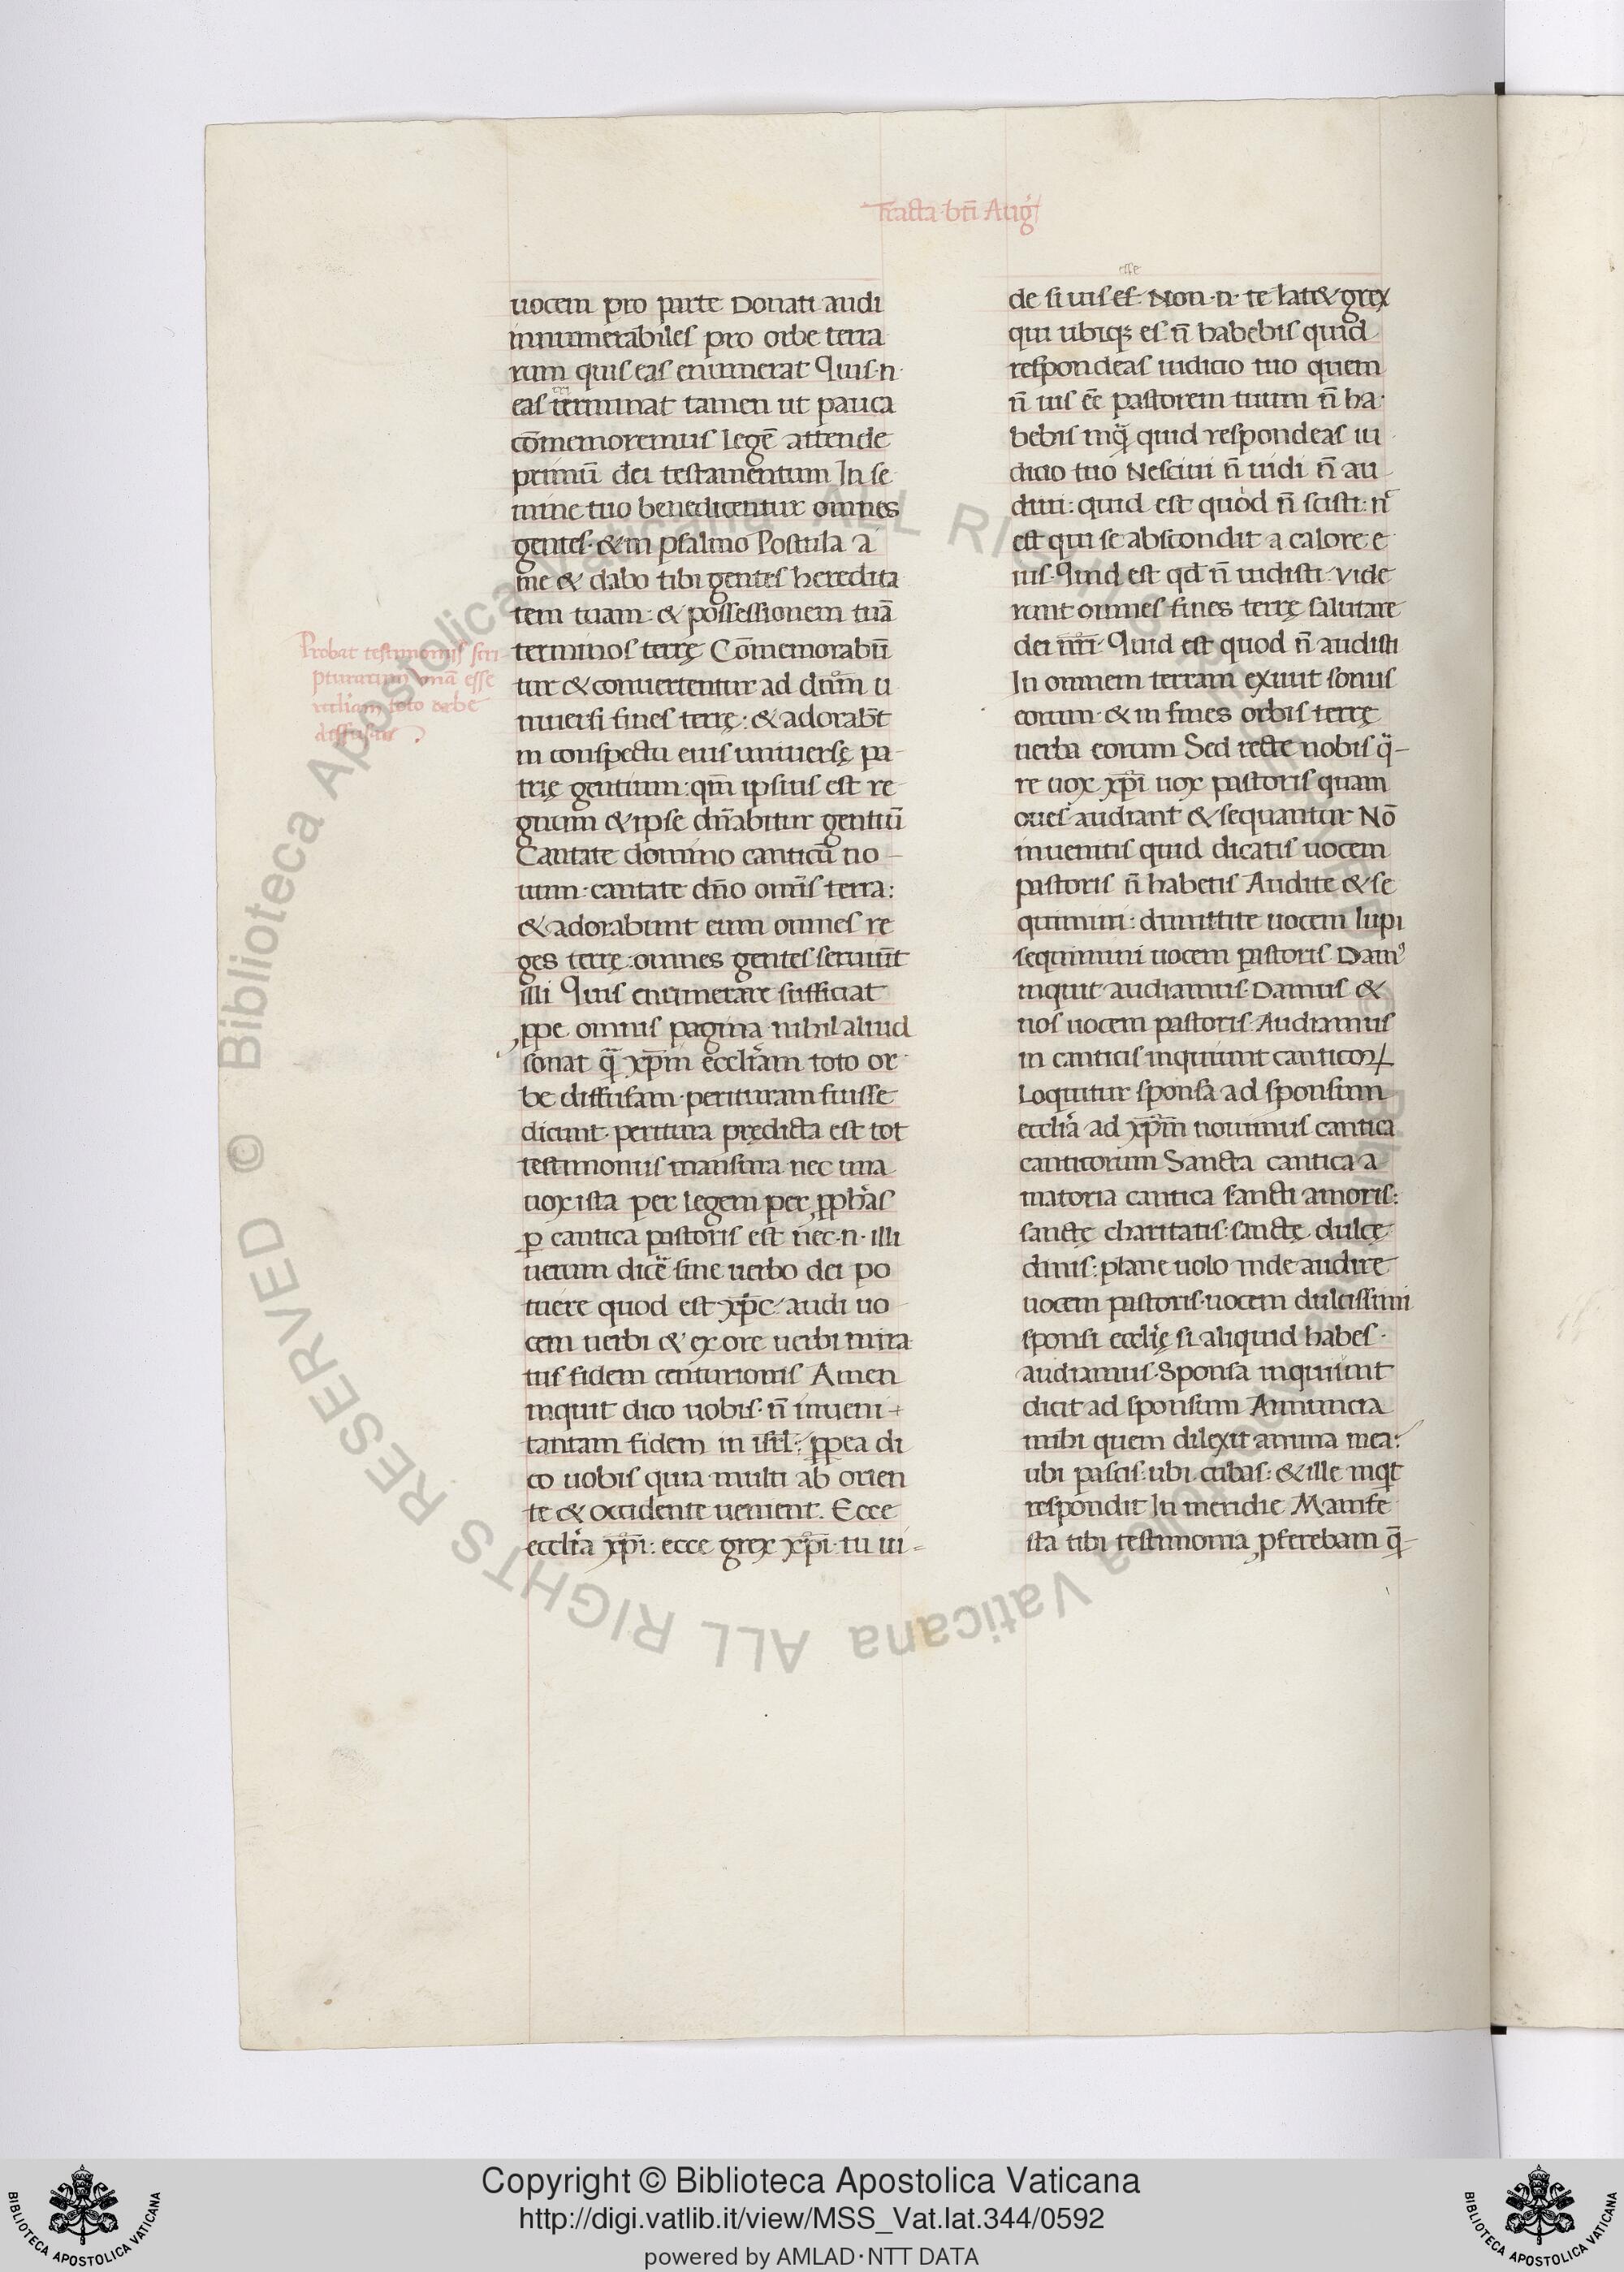 Tracta bti Aug
uocem pro parte Donati audi
innumerabiles pro orbe terra
rum quis eas enumerat Quis·n·
eas terminat tamen ut pauca
cōmemoremus Legē attende
primū dei testamentum In se
mine tuo benedicentur omnes
gentes· & in psalmo Postula a
me & dabo tibi gentes heredita
tem tuam: & possessionem tuā
terminos terrę Cōmemorabūt
tur & conuertentur ad dnm u
niuersi fines terrę: & adorabt
in conspectu eius uniuersę pa-
trię gentium: qm ipsius est re-
gnum & ipse dnabitur gentiū
Cantate domino canticū no-
uum· cantate dno omis terra:
& adorabunt eum omnes re
ges terrę: omnes gentes seruiūt
illi Quis enumerare sufficiat
ppe omnis pagina nihil aliud
sonat q xpm eccliam toto or
be diffusam· perituram fuisse
dicunt· peritura prędicta est tot
testimoniis mansura nec una
uox ista per legem per pphas
p cantica pastoris est nec·n· illi
uerum dicē sine uerbo dei po
tuere quod est xpc audi uo
cem uerbi & ex ore uerbi mira
tus fidem centurionis Amen
inquit dico uobis· n̄ inueni
tantam fidem in isrl: ppea di
co uobis quia multi ab orien
te & occidente uenient. Ecce
ecclia xpi: ecce grex xpi· tu ui-
Probat testimonijs scri
pturarum unā esse
eccliam toto orbe
diffusam
esse
de si uis es Non·n· te lat& grex
qui ubiq; es n̄ habebis quid
respondeas iudicio tuo quem
n̄ uis ēē pastorem tuum n̄ ha
bebis inq̄ quid respondeas iu
dicio tuo Nesciui n̄ uidi n̄ au
diui: quid est quod n̄ scisti: n̄
est qui se abscondit a calore e
ius· Quid est qd n̄ uidisti· Vide
runt omnes fines terrę salutare
dei nri· Quid est quod n̄ audisti
In omnem terram exiuit sonus
eorum· & in fines orbis terrę
uerba eorum Sed recte nobis q-
re uox xpi uox pastoris quam
oues audiant & sequantur Nō
inuenitis quid dicatis uocem
pastoris n̄ habetis Audite & se
quimini: dimittite uocem lupi
sequimini uocem pastoris Dam⁹
inquit audiamus· Damus &
nos uocem pastoris· Audiamus
in canticis inquiunt canticoꝝ
Loquitur sponsa ad sponsum
ecclia ad xpm nouimus cantica
canticorum Sancta cantica a
matoria cantica sancti amoris:
sanctę charitatis· sanctę dulcę
dinis: plane uolo inde audire
uocem pastoris· uocem dulcissimi
sponsi ecclię si aliquid habes·
audiamus· Sponsa inquiunt
dicit ad sponsum Annuncia
mihi quem dilexit anima mea:
ubi pascis: ubi cubas: & ille inqt
respondit In meridie Manife
sta tibi testimonia pferebam q-
Biblioteca Apostolica Vaticana ALL RIGHTS RESERVED © Biblioteca Apostolica Vaticana ALL RIGHTS RESERVED ©
Copyright © Biblioteca Apostolica Vaticana
http://digi.vatlib.it/view/MSS_Vat.lat.344/0592
powered by AMLAD·NTT DATA
BIBLIOTECA APOSTOLICA VATICANA
BIBLIOTECA APOSTOLICA VATICANA